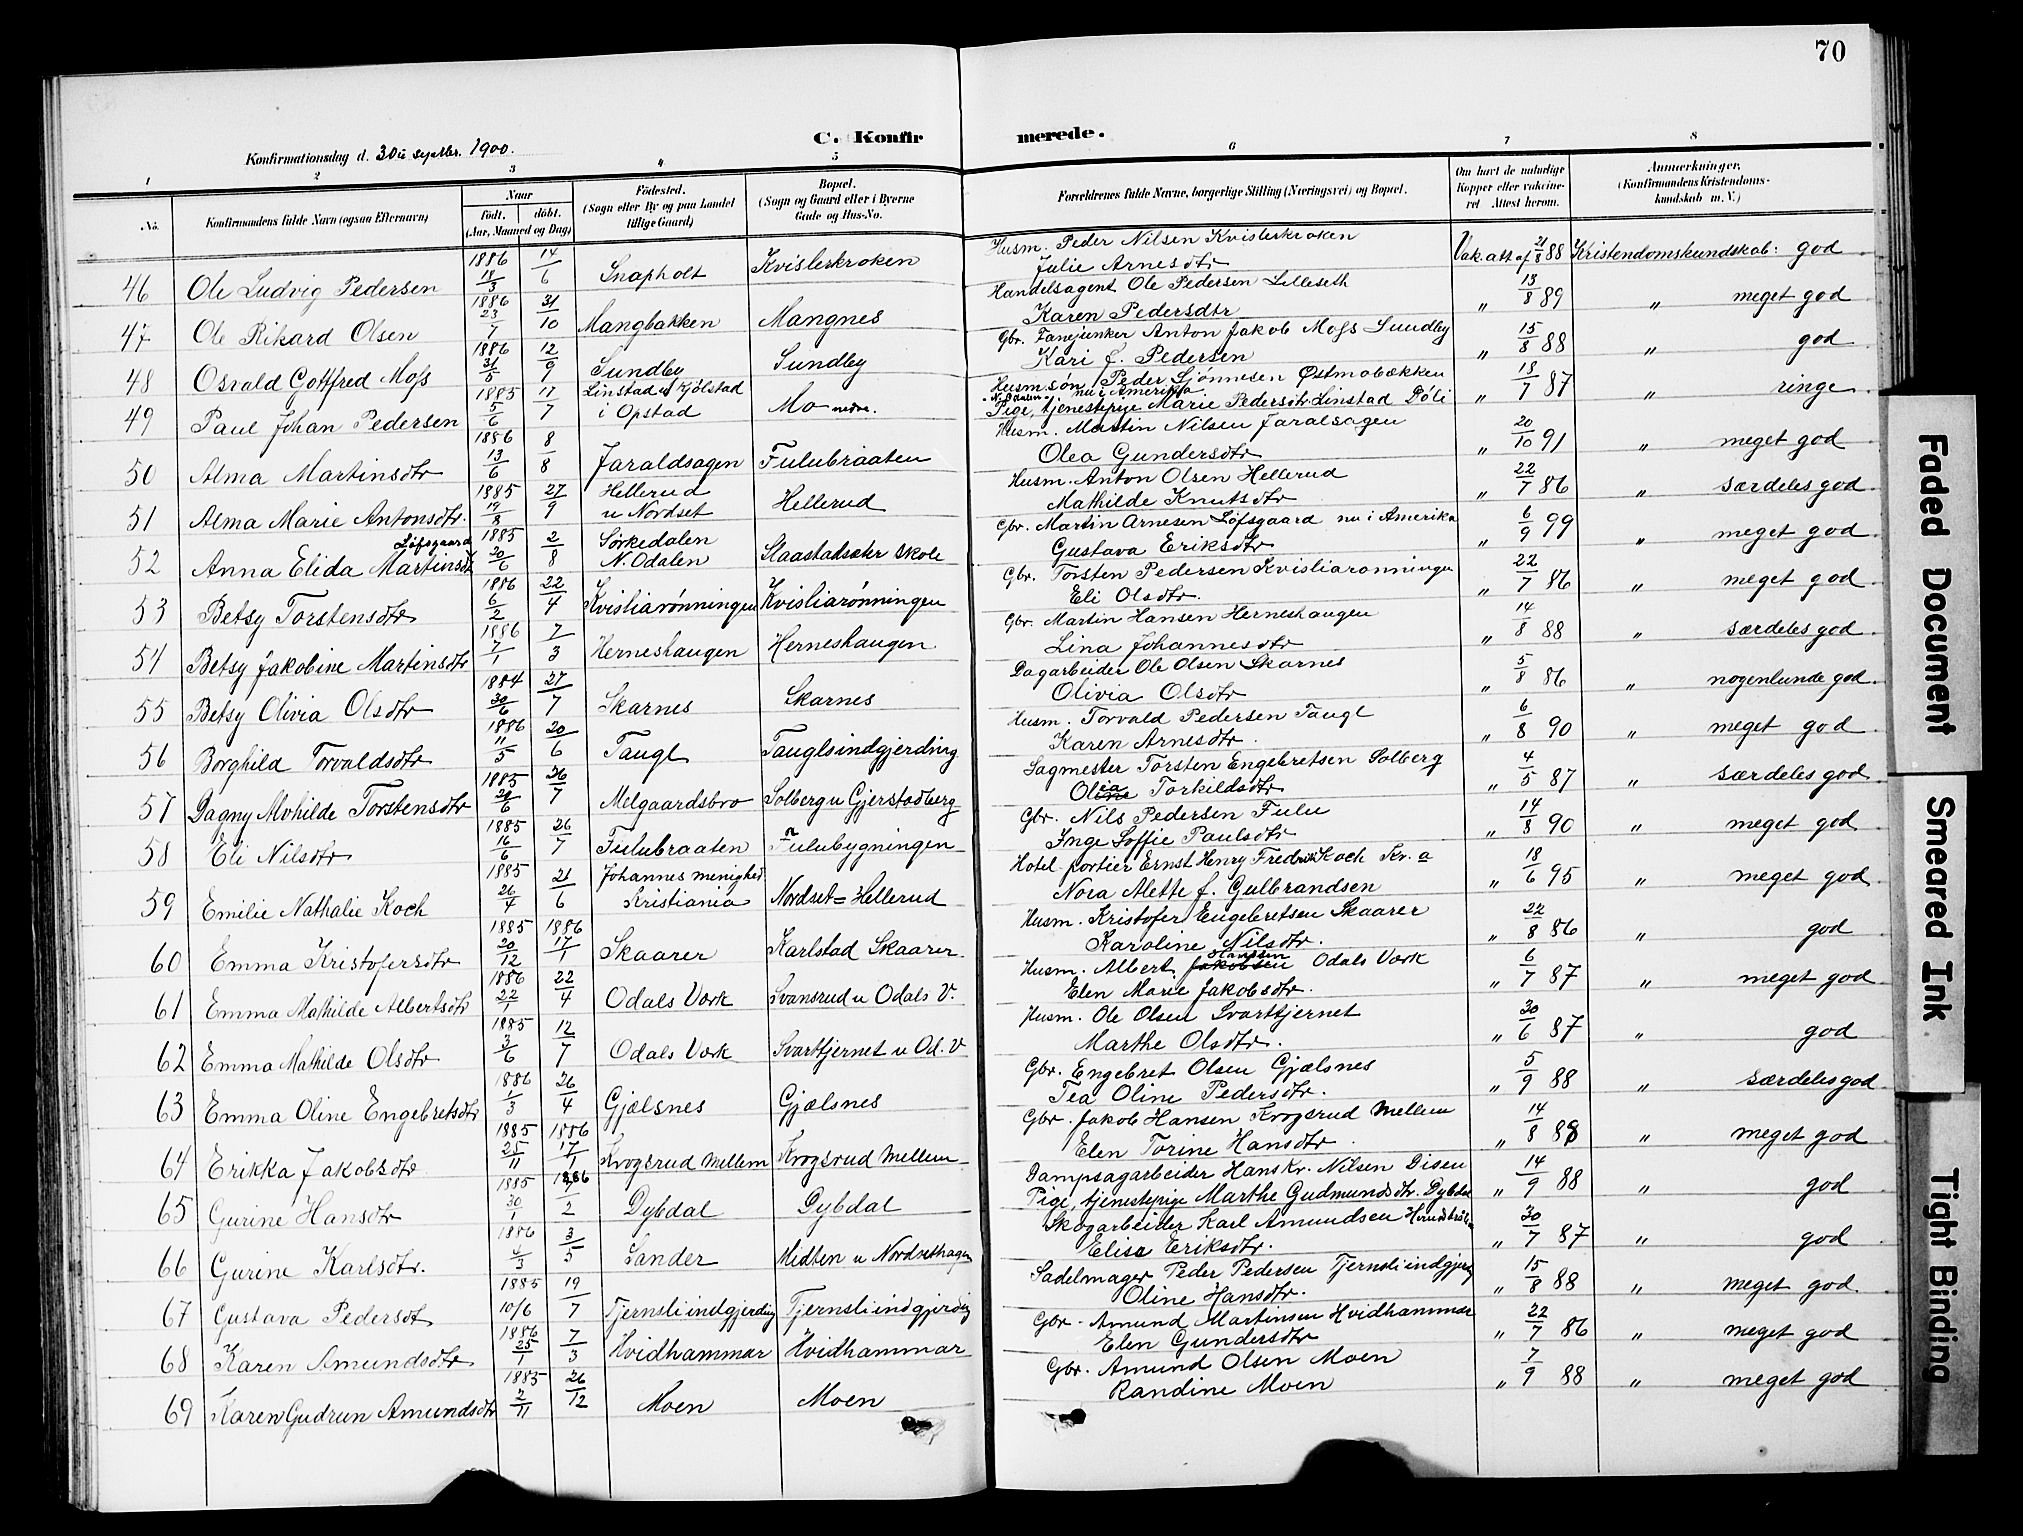 70
C. Konfirmerede.
Konfirmationsdag d. 30te septbr. 1900.
1 2 3 4 5 6 7 8
No. Konfirmandens fulde Navn (ogsaa Efternavn) Naar født. døbt. (Aar, Maaned og Dag) Fødested. (Sogn eller By og paa Landet tillige Gaard) Bopæl. (Sogn og Gaard eller i Byerne Gade og Hus-No. Forældrenes fulde Navne, borgerlige Stilling (Næringsvei) og Bopæl. Om havt de naturlige Kopper eller vaccineret Attest herom. Anmerkninger. (Konfirmandens Kristendomskundskab m. V.)
46 Ole Ludvig Pedersen 1886 18/3 14/6 Snapholt Kvislerkroken Husm. Peder Nilsen Kvislerkroken Julie Arnesdtr Vak. att af 21/8 88 Kristendomskundskab: god
47 Ole Rikard Olsen 1886 23/7 31/10 Mangbakken Mangnes Handelsagent Ole Pedersen Lilleseth Karen Pedersdtr „ 13/8 89 „ meget god
48 Osvald Gottfred Moss 1886 31/5 12/9 Sundby Sundby Gbr. Fanejunker Anton Jakob Moss Sundby Kari f. Pedersen „ 15/8 88 „ god
49 Paul Johan Pedersen 1885 5/6 11/7 Linstad u Kjølstad i Opstad Mo nedre. Husm. søn Peder Sjønnesen Østmobækken N. Odalen nu i Amerika Pige, tjenestepige Marie Pedersdtr Linstad Døli „ 18/7 87 „ ringe
50 Alma Martinsdtr 1886 13/6 8/8 Jaraldsagen Fulubraaten Husm. Martin Nilsen Jaralsagen Olea Gundersdtr „ 20/10 91 „ meget god
51 Alma Marie Antonsdtr. 1885 19/8 27/9 Hellerud u Nordset Hellerud Husm. Anton Olsen Hellerud Mathilde Knutsdtr „ 22/7 86 „ særdeles god
52 Anna Elida Martinsdt Løfsgaard 1885 20/6 2/8 Sørkedalen N. Odalen Slaastadsæter skole Gbr. Martin Arnesen Løfsgaard nu i Amerika Gustava Eriksdtr „ 6/9 99 „ meget god
53 Betsy Torstensdtr 1886 6/2 22/4 Kvisliarønningen Kvisliarønningen Gbr. Torsten Pedersen Kvisliarønningen Eli Olsdtr. „ 22/7 86 „ meget god
54 Betsy Jakobine Martinsdtr 1886 7/1 7/3 Herneshaugen Herneshaugen Gbr. Martin Hansen Herneshaugen Lina Johannesdtr „ 14/8 88 „ særdeles god
55 Betsy Olivia Olsdtr 1884 30/6 27/7 Skarnes Skarnes Dagarbeider Ole Olsen Skarnes Olivia Olsdtr „ 5/8 86 „ nogenlunde god
56 Borghild Torvaldsdtr 1886 11/5 20/6 Taugl Tauglsindgjerding Husm. Torvald Pedersen Taugl Karen Arnesdtr. „ 6/8 90 „ meget god
57 Dagny Mohilde Torstensdtr 1885 29/6 26/7 Melgaardsbro Solberg u Gjerstadberg Sagmester Torsten Engebretsen Solberg Olea Torkildsdtr „ 4/5 87 „ særdeles god
58 Eli Nilsdtr 1885 16/6 26/7 Fulubraaten Fulubygningen Gbr. Nils Pedersen Fulu Inge Soffie Paulsdtr „ 14/8 90 „ meget god
59 Emilie Nathalie Koch 1885 26/4 21/6 Johannes menighed Kristiania Nordset = Hellerud Hotel portier Ernst Henry Fredrik Koch Kr. a Nora Alette f. Gulbrandsen „ 18/6 95 „ meget god
60 Emma Kristofersdtr 1885 20/12 1886 17/1 Skaarer Karlstad Skaarer Husm. Kristofer Engebretsen Skaarer Karoline Nilsdtr. „ 22/8 86 „ god
61 Emma Mathilde Albertsdtr 1886 22/1 22/4 Odals Værk Svansrud u Odals V. Husm. Albert Jakobsen Hanssen Odals Værk Elen Marie Jakobsdtr. „ 6/7 87 „ meget god
62 Emma Mathilde Olsdtr 1885 3/6 12/7 Odals Værk Svarttjernet u Od. V Husm. Ole Olsen Svarttjernet Marthe Olsdtr. „ 30/6 87 „ god
63 Emma Oline Engebretsdtr 1886 1/3 26/4 Gjælsnes Gjælsnes Gbr. Engebret Olsen Gjælsnes Tea Oline Pedersdtr. „ 5/9 88 „ særdeles god
64 Erikka Jakobsdtr 1885 25/11 1886 17/1 Krogsrud Mellem Krogsrud Mellem Gbr. Jakob Hansen Krogsrud Mellem Elen Torine Hansdtr „ 14/8 88 „ meget god
65 Gurine Hansdtr 1885 30/1 1886 /2 Dybdal Dybdal Dampsagarbeider Hans Kr. Nilsen Disen Pige, tjenestepige Marthe Gudmundsdtr. Dybdal „ 14/9 88 „ god
66 Gurine Karlsdtr. 1886 4/3 3/5 Sander Midten u Nordsethagen Skogarbeider Karl Amundsen Elise Eriksdtr. „ 30/7 87 „ god
67 Gustava Pedersdt 1885 10/6 19/7 Tjernsliindgjerding Tjernsliindgjerdig Sadelmager Peder Pedersen Tjernsliindgjerdg Oline Hansdtr. „ 15/8 88 „ meget god
68 Karen Amundsdtr 1886 25/1 7/3 Hvidhammar Hvidhammar Gbr. Amund Martinsen Hvidhammar Elen Gundersdtr „ 22/7 86 „ meget god
69 Karen Gudrun Amundsdtr 1885 2/11 26/12 Moen Moen Gbr. Amund Olsen Moen Randine Moen „ 7/9 88 „ meget god
Faded Document
Smeared Ink
Tight Binding